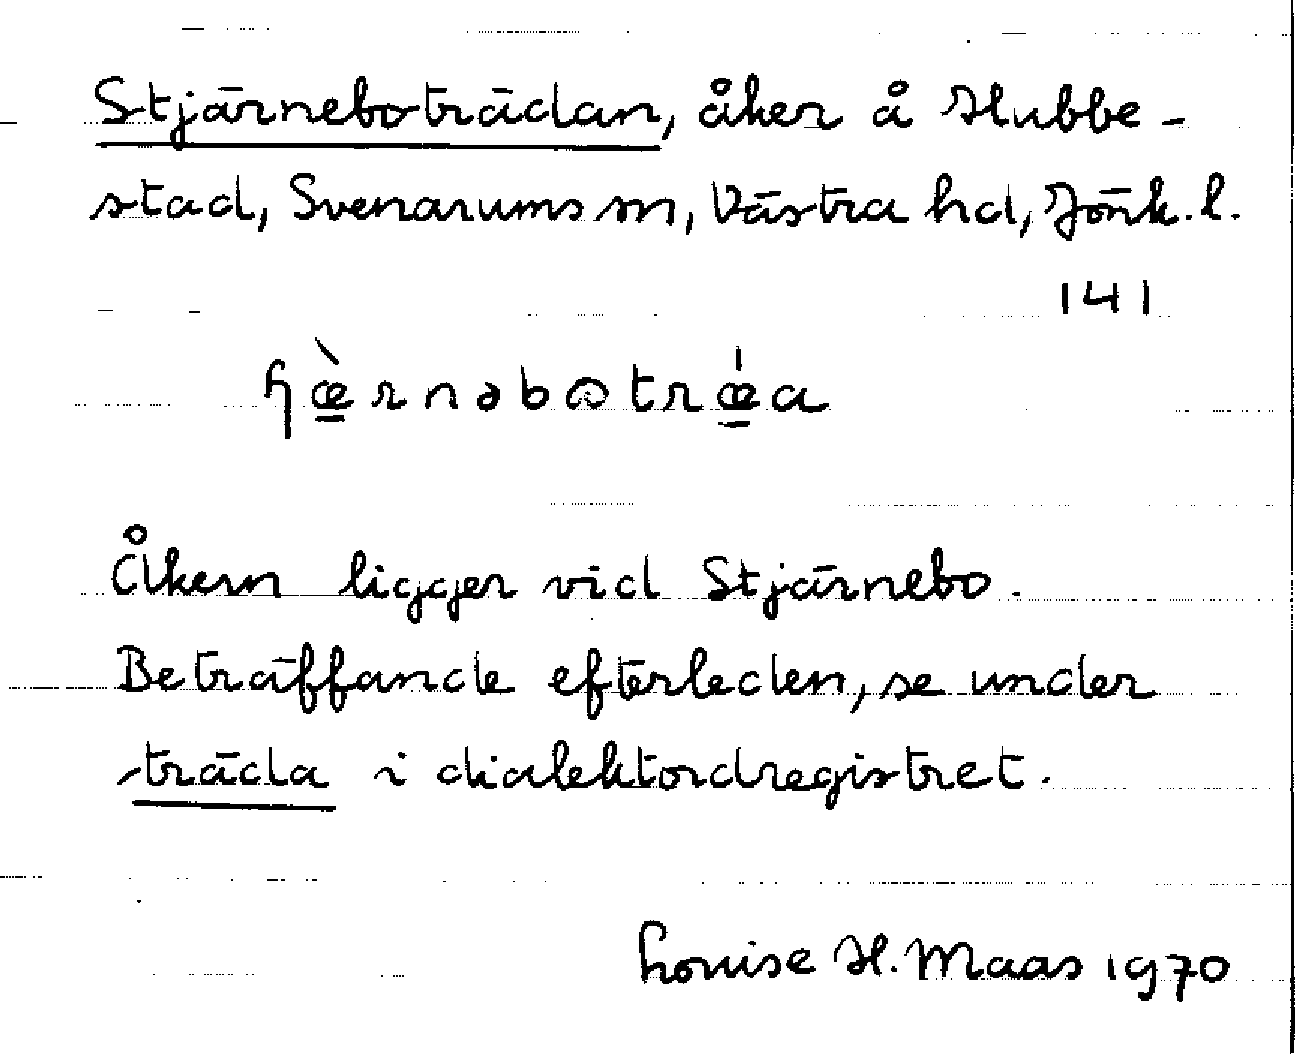 Stjärneboträdan, åker å Hubbe-
stad, Svenarums sn, Västra hd, Jönk. l.
141
ɧæ̱̀rnəbɷtrǽ̱a
Åkern ligger vid Stjärnebo.
Beträffande efterleden, se under
träda i dialektordregistret.
Louise H. Maas 1970